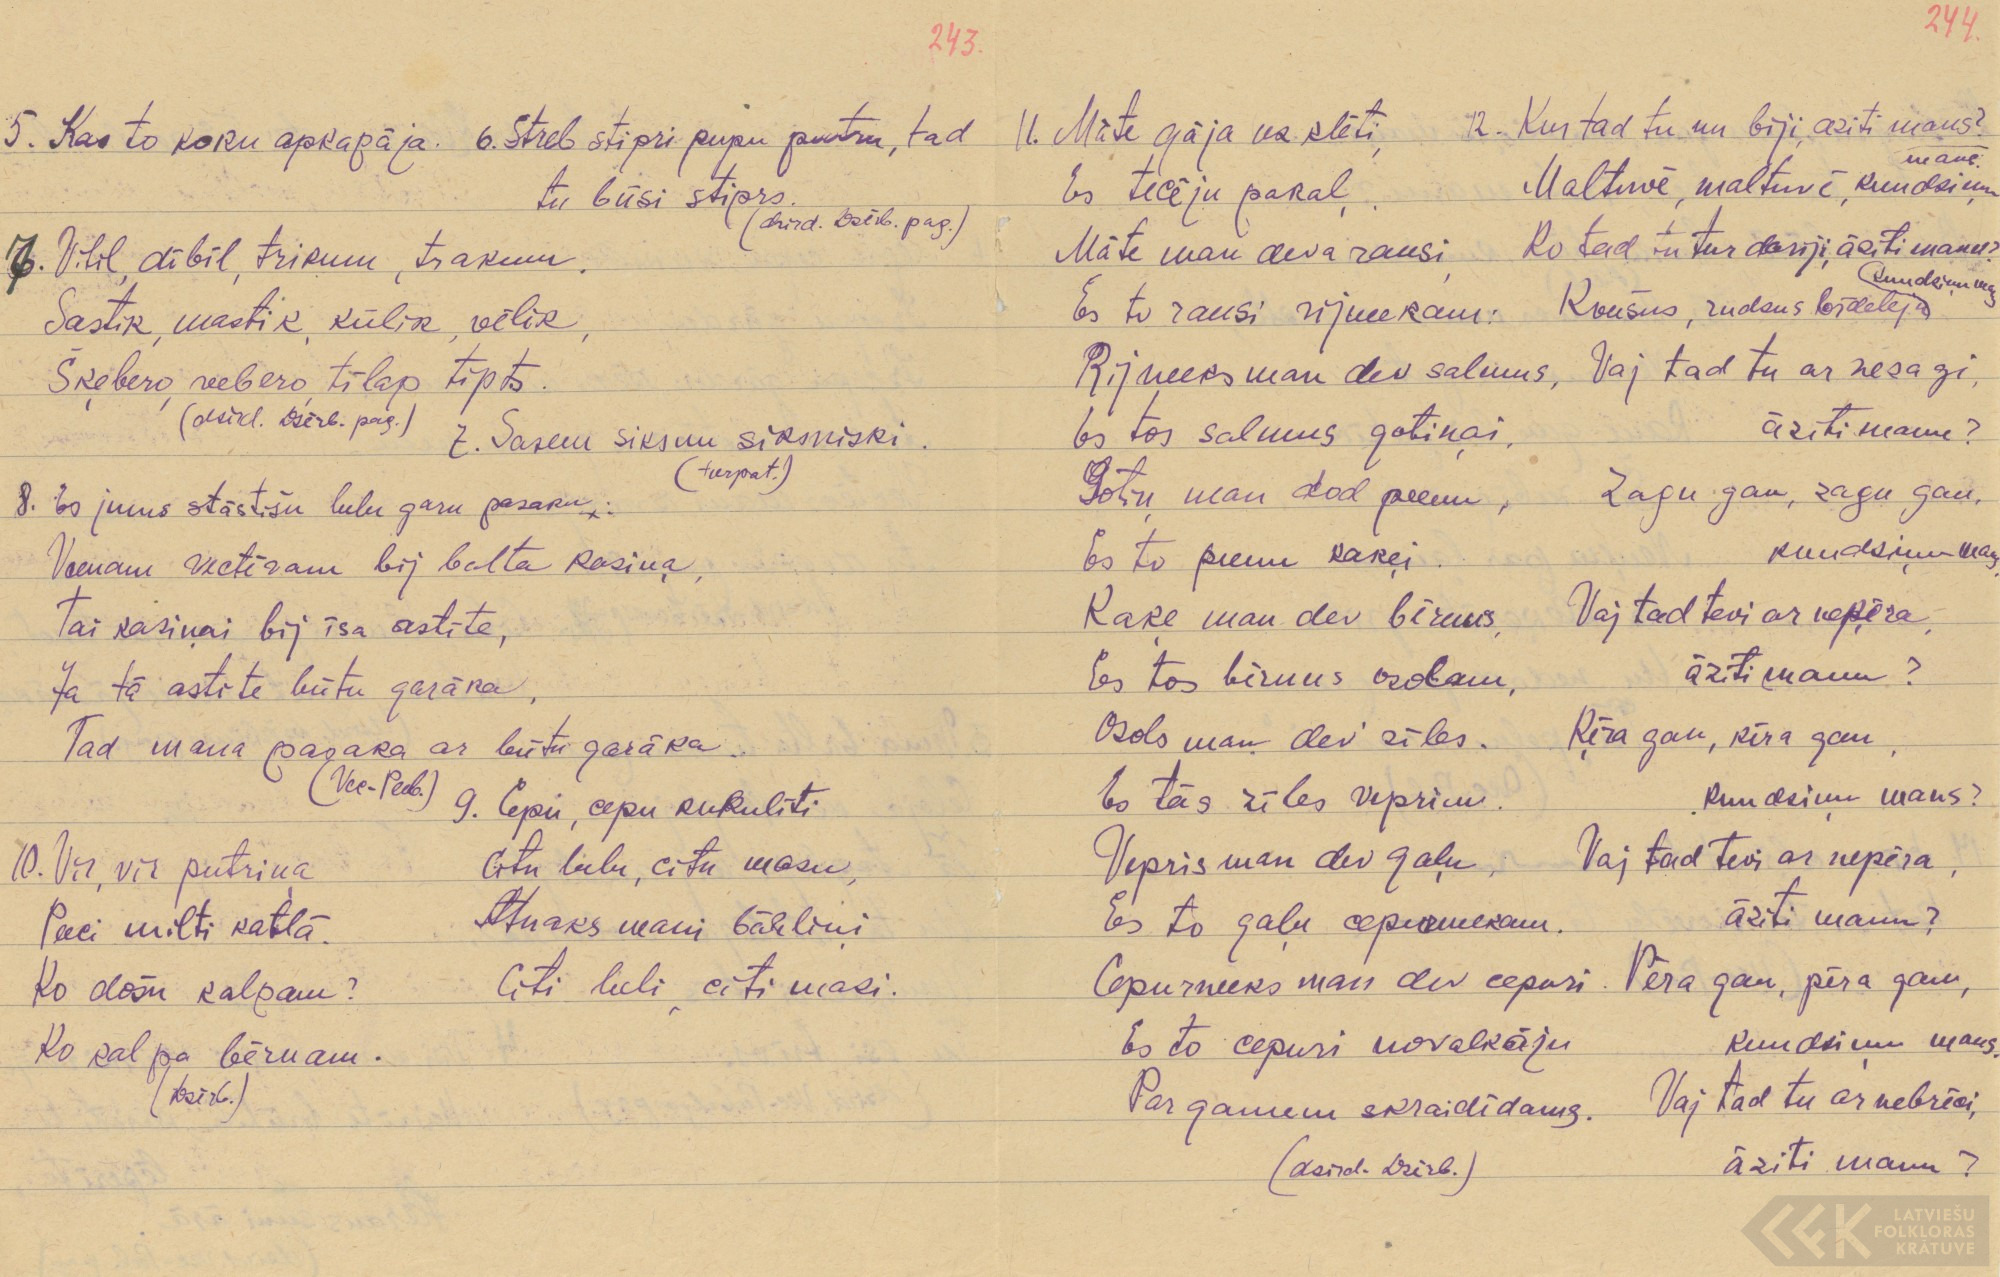 243.
5. Kas to koku apkapāja.
6. Streb stipri pupu putru, tad
tu būsi stiprs.
(dzird. Dzērb. pag.)
7. Vitil, dibil, trikum, trakum.
Sastik, mastik, kūlik, vēlik,
Šķebero, vebero, tilap tipts.
(dzird. Dzērb. pag.)
7. Sasem siksnu siksniski.
(turpat.)
8. Es jums stāstīšu lulu garu pasaku:
Veenam vectēvam bij balta kaziņa,
Tai kaziņai bij īsa astīte,
Ja tā astīte būtu garāka,
Tad mana pasaka ar būtu garāka.
(Vec-Peeb.)
9. Cepu, cepu kukulīti
Citu lulu, citu mazu,
Atnaks mani bāliņi
Citi luli, citi mazi.
10. Vir, vir putriņa
Peeci milti katlā.
Ko došu kalpam?
Ko kalpa bērnam.
(Dzērb.)
244.
11. Māte gāja uz klēti,
Es tecēju pakaļ.
Māte man deva rausi
Es to rausi rijneekam:
Rijneeks man dev salmus,
Es tos salmus gotiņai,
Gotiņ man dod peenu,
Es to peenu kaķei.
Kaķe man dev bērnus,
Es tos bērnus ozolam,
Ozols man dev zīles.
Es tās zīles veprim.
Vepris man dev gaļu,
Es to gaļu cepurneekam.
Cepurneeks man dev cepuri.
Es to cepuri novalkāju
Par ganeem skraidīdams.
(dzird. Dzērb.)
12. Kur tad tu nu biji, āzīti manu?
Maltuvē, maltuvē, kundziņu
manu.
Ko tad tu tur darīji, āzīti manu?
Kveešus, rudzus bīdelēju
kundziņu manu
Vaj tad tu ar nezagi,
āzīti manu?
Zagu gan, zagu gan,
kundziņu manu.
Vaj tad tevi ar neķēra,
āzīti manu?
Ķēra gan, ķēra gan,
kundziņu manu?
Vaj tad tevi ar nepēra,
āzīti manu?
Pēra gan, pēra gan,
kundziņu manu.
Vaj tad tu ar nebrēci,
āzīti manu?
LATVIEŠU
FOLKLORAS
KRĀTUVE